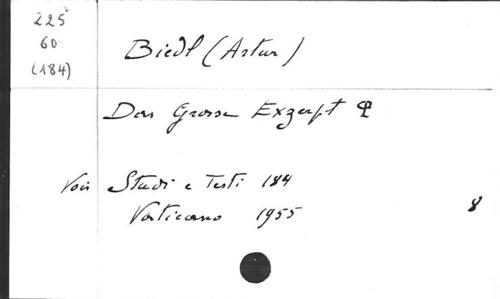 225
60
(184)
Biedl (Artur)
Das Grosse Exzerpt Φ
Voir Studi e Testi 184
Vaticano 1955
8